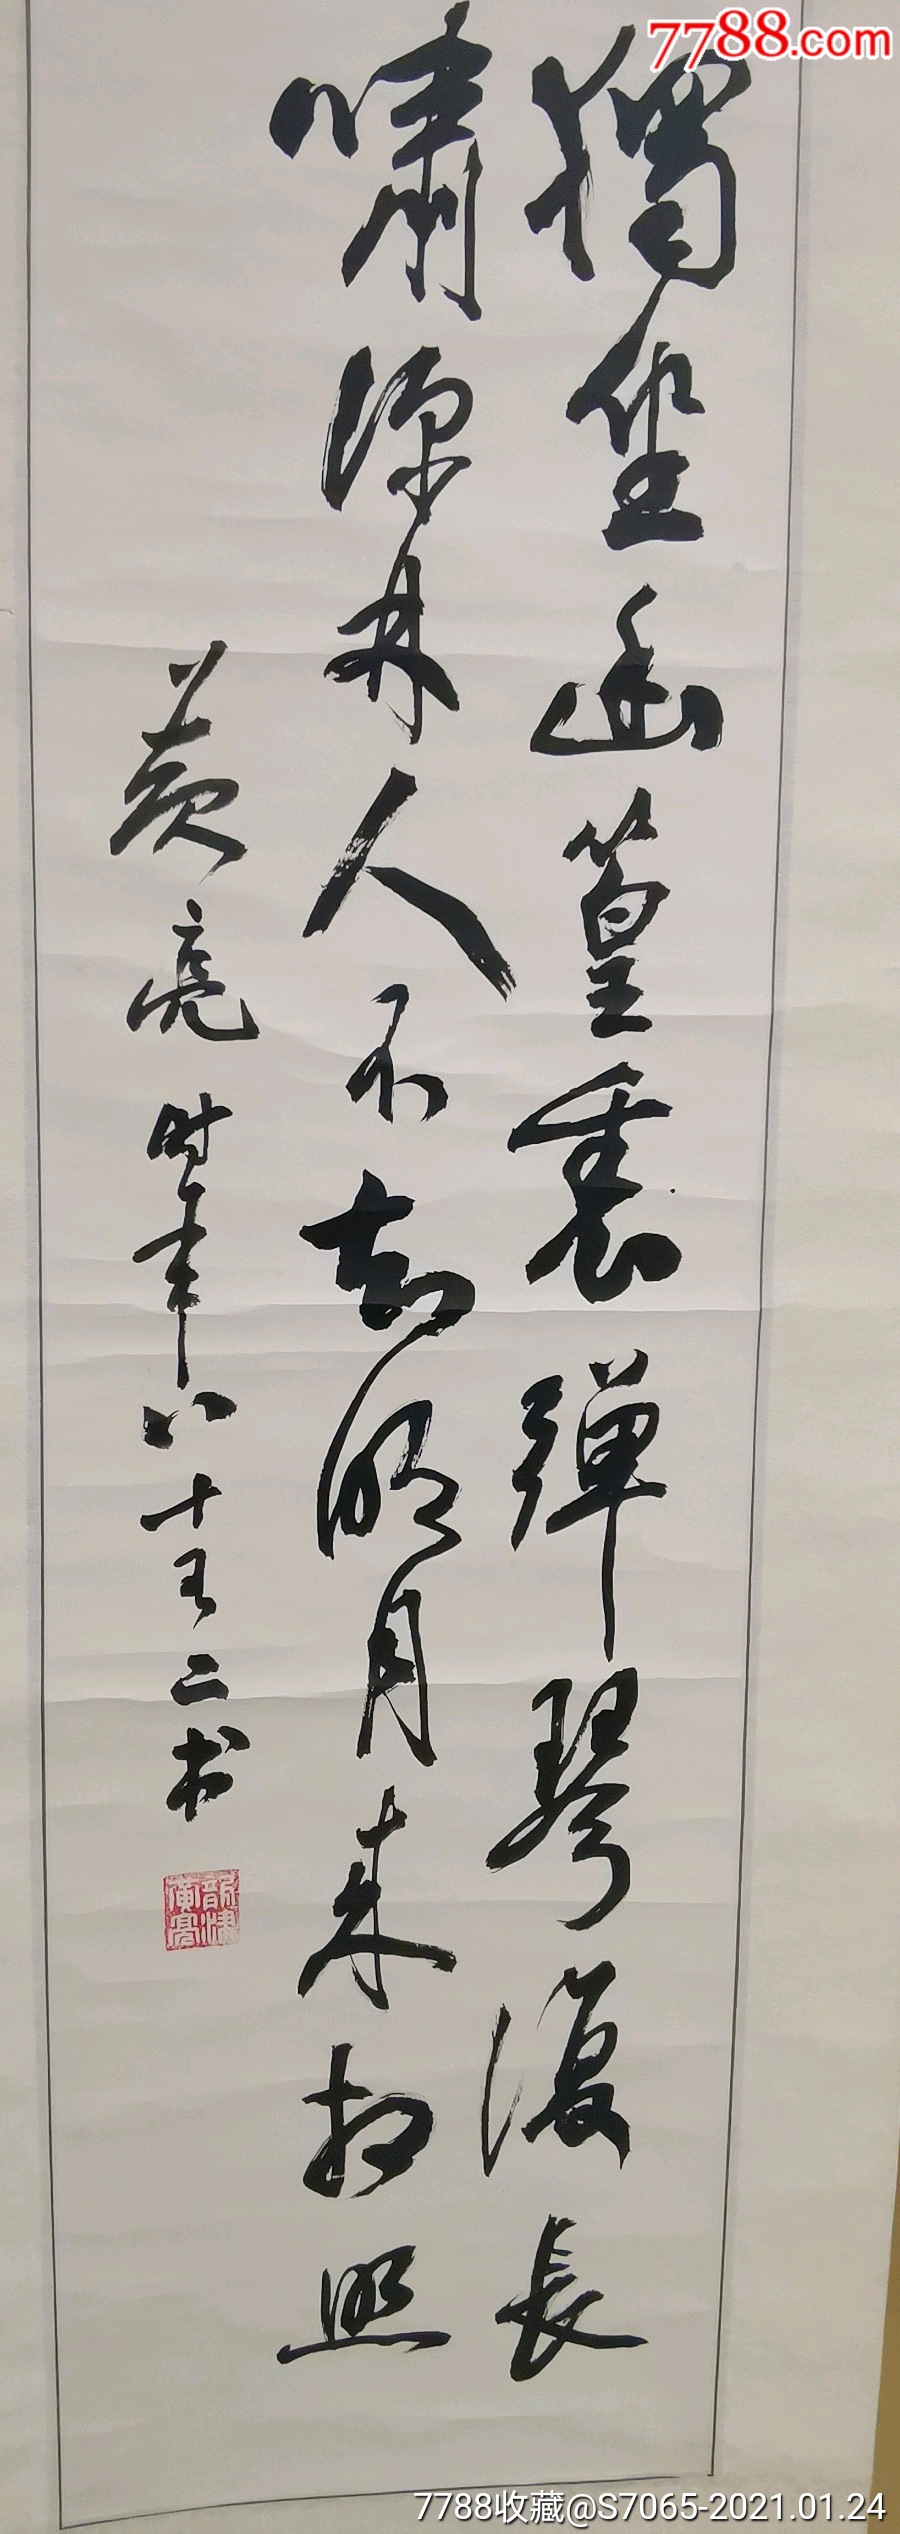 7788.com
獨坐幽篁裏彈琴復長
嘯深林人不知明月来相照
黄亮时年八十有二书
7788收藏@S7065-2021.01.24